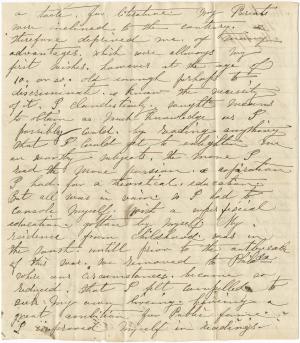 a taste for literature My Parents
were inclined to the contrary
therefore deprived me of
advantages. which were always my
first wishes. however at the age of
10. or so. old enough perhaps to
discriminate & know the necessity
of it, I clandestinely sought means
to obtain as much knowledge as I
possibly could, by reading anything
that I could get to enlighten me
on worthy subjects, the more I
read the more passion & aspiration
I had for a theoretical education
But all was in vain so I had to
console myself with a superficial
education gotten by myself My
residence from Childhood was in
the south untill prior to the
of this war. we removed to Phila
while our circumstances became so
reduced. that I felt compelled to
seek my own having a
great ambition for Public fame
I improved myself in readings